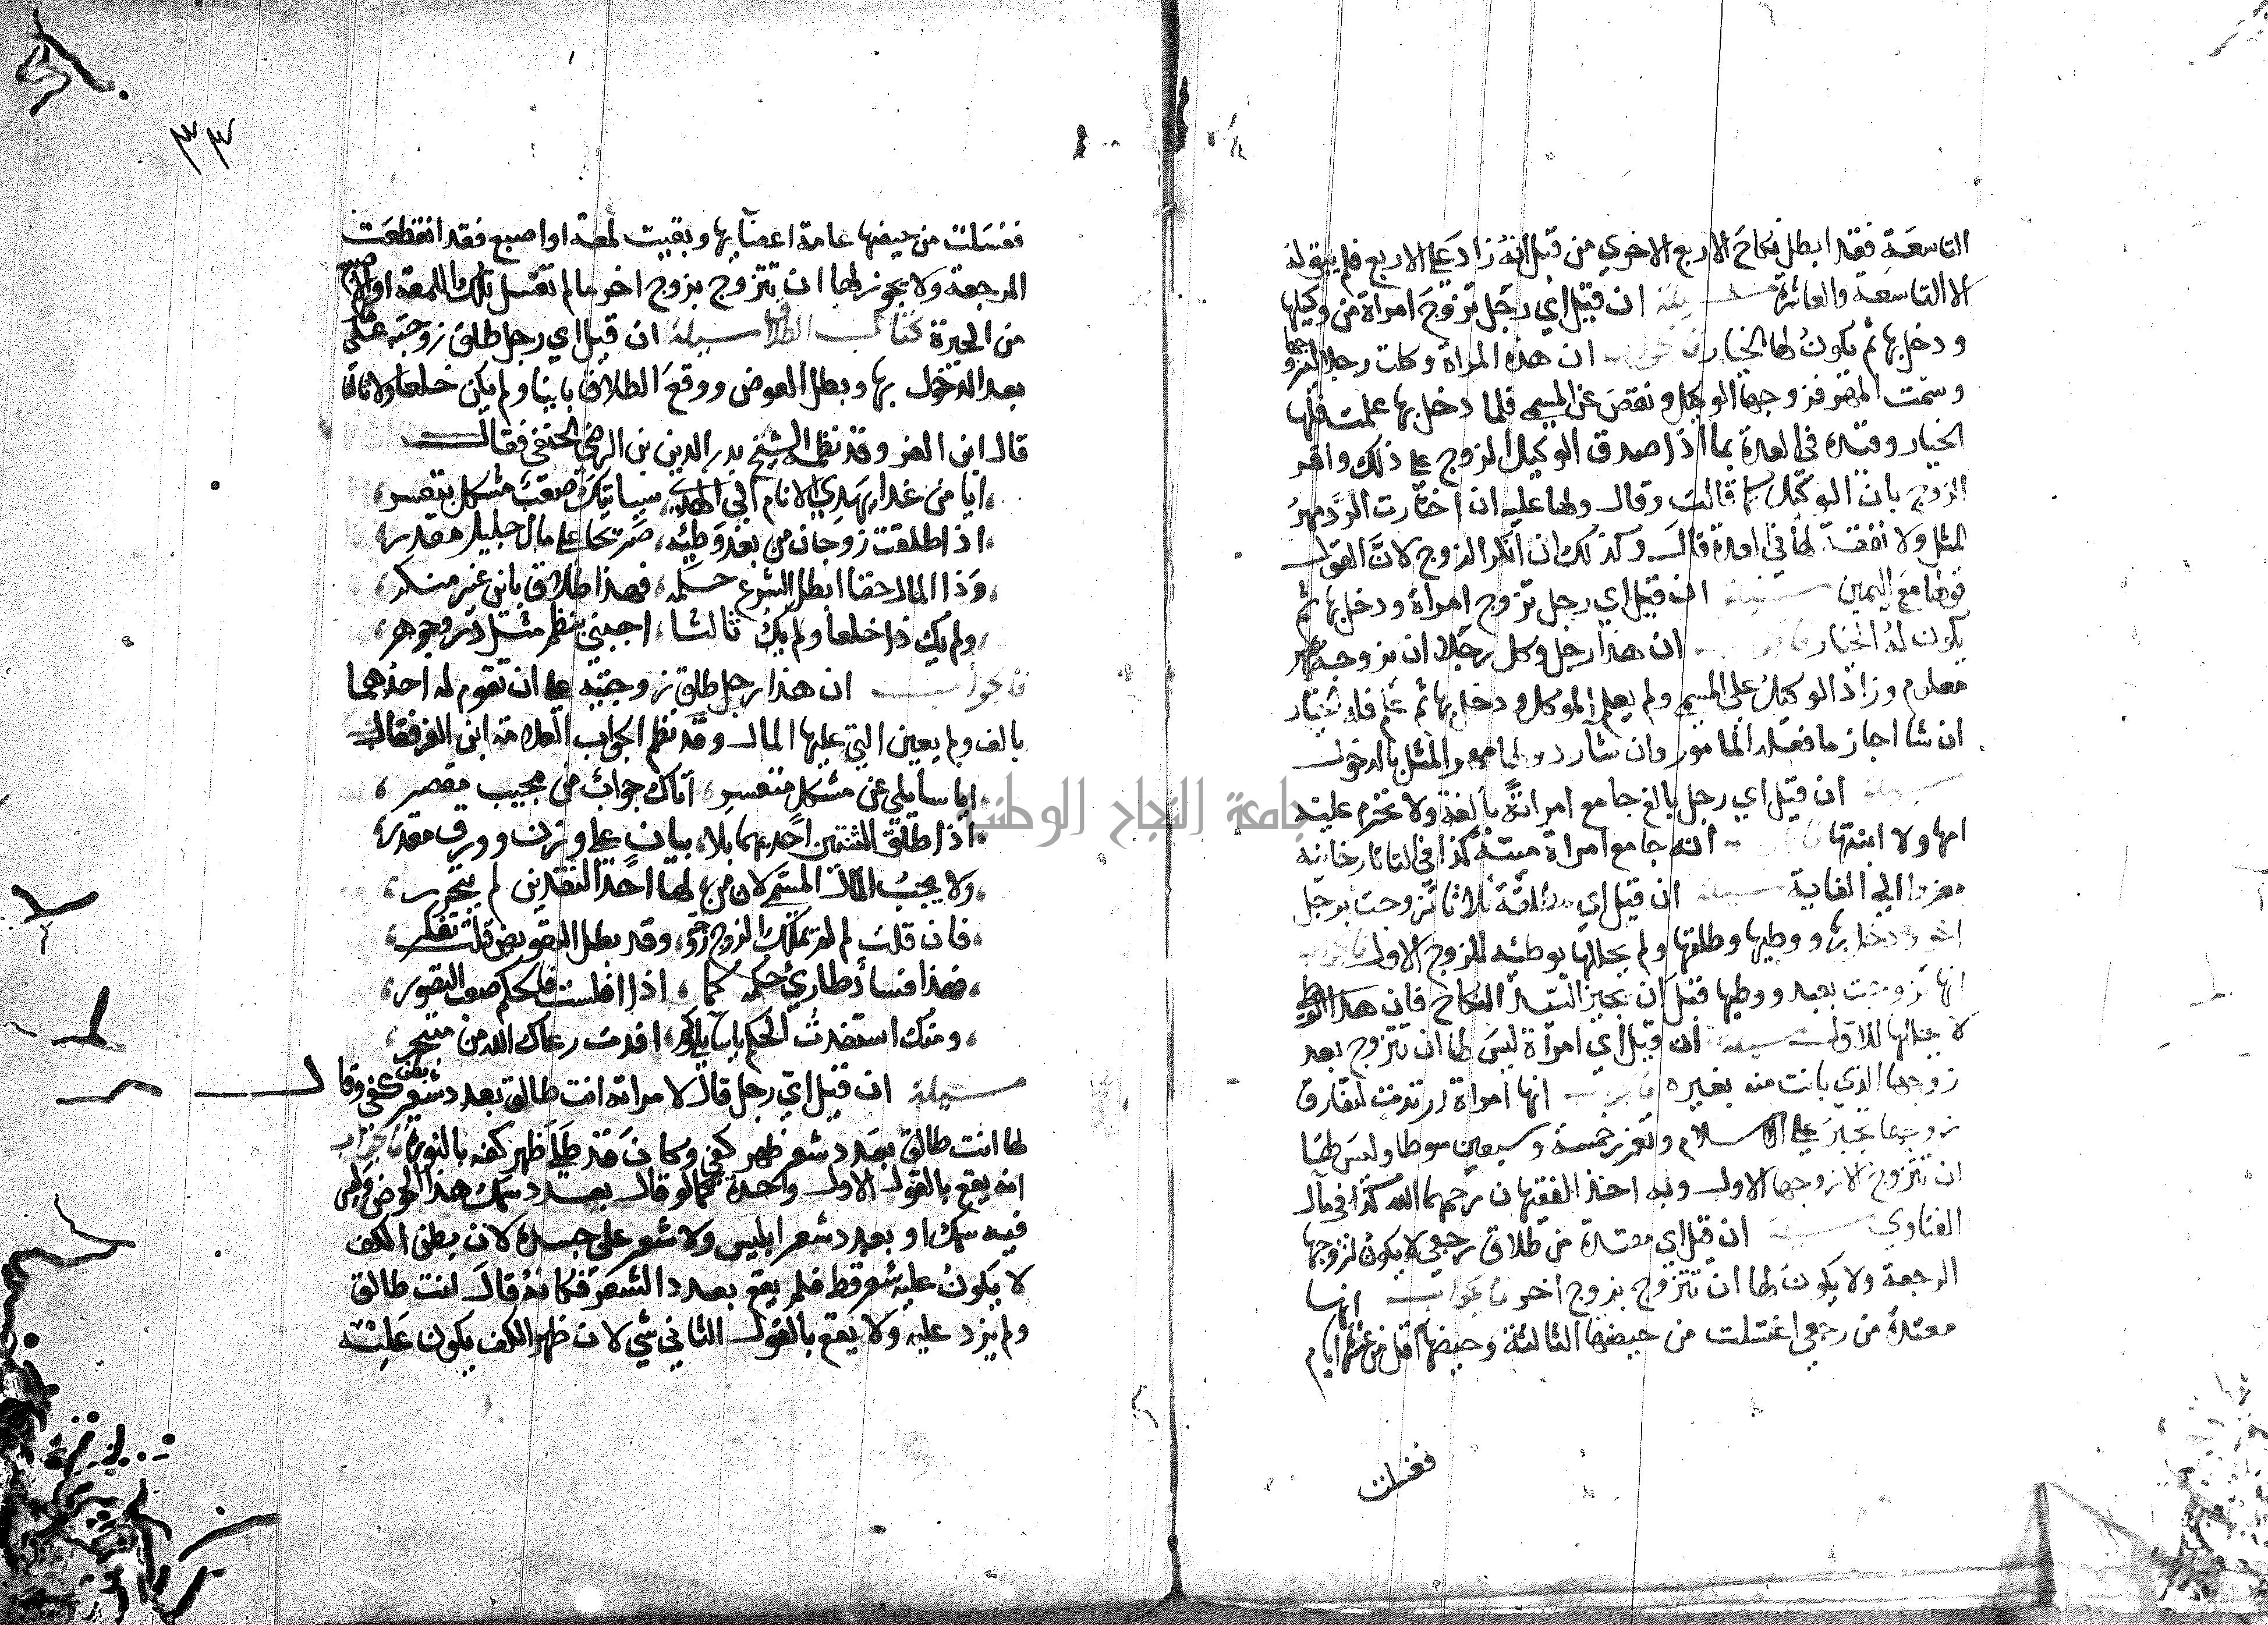 التاسعة فقد ابطل نكاح الاربع الاخرى من قبل انه زاد علي الاربع فلم يبق له
الا التاسعة والعاشرة مسيلة ان قيل اي رجل تزوج امراة من وكيلها
ودخل بها ثم يكون لها الخيار فالجواب ان هذه المراة وكلت رجلا ليزوجها
وسمت المهر فزوجها الوكيل ونقص عن المسمي فلما دخل بها علمت فلها
الخيار وقيده في العدة بما اذا صدق الوكيل الزوج علي ذلك واقر
الزوج بان الوكيل كما قالت وقال ولها عليه ان اختارت الرد مهر
المثل ولا نفقة لها في العدة قال وكذلك ان انكر الزوج لان القول
قولها مع اليمين مسيلة ان قيل اي رجل تزوج امراة ودخل بها ثم
يكون له الخيار فالجواب ان هذا رجل وكل رجلا ان يزوجه بمهر
معلوم وزاد الوكيل على المسمي ولم يعلم الموكل ودخل بها ثم علم فله الخيار
ان شا اجاز ما فعله المامور وان شا رد ولها مهر المثل بالدخول
مسيلة ان قيل اي رجل بالغ جامع امراة بالغة ولا تحرم عليه
امها ولا ابنتها انه جامع امراة ميتة كذا في التاتارخانيه
معزوا الي الغاية مسيلة ان قيل اي مطلقة ثلاثا تزوجت برجل
اخر ودخل بها ووطيها وطلقها ولم يحلها بوطئه للزوج الاول فالجواب
انها تزوجت بعبد ووطيها قبل ان يجيز السيد النكاح فان هذا الوطي
لا يحلها للاول مسيلة ان قيل اي امراة ليس لها ان تتزوج بعد
زوجها الذي بانت منه بغيره فالجواب انها امراة ارتدت لتفارق
زوجها تجبر علي الاسلام وتعزر خمسة وسبعين سوطا وليس لها
ان تتزوج الا زوجها الاول وبه اخذ الفقيهان رحمهما الله كذا في مآل
الفتاوي مسيلة ان قيل اي معتدة من طلاق رجعي لا يكون لزوجها
الرجعة ولا يكون لها ان تتزوج بزوج اخر فالجواب انها
معتدة من رجعي اغتسلت من حيضها الثالثة وحيضها اقل من عشرة ايام
فغسلت
٣٣
فغسلت من حيضها عامة اعضآيها وبقيت لمعة او اصبع فقد انقطعت
الرجعة ولا يجوز لها ان تتزوج بزوج اخر ما لم تغتسل تلك اللمعة او الاصبع
من الحيرة كتاب الطلاق مسيلة ان قيل اي رجل طلق زوجته على مال
بعد الدخول بها وبطل العوض ووقع الطلاق باينا ولم يكن خلعا ولا ثالثا
قال ابن العز وقد نظمه الشيخ بدر الدين بن الرضي الحنفي فقال
ايا من غدا يهدي الانام الى الهدي، سياتيك صعب مشكل يتعسر،
اذا طلقت زوجان من بعد وطئه، صريحا علي مال جليل مقدر،
وذا المال حقا ابطل الشرع حله، فهذا طلاق باين غير منكر،
ولم يك ذا خلعا ولم يك ثالثا، اجبني بنظم مثل در وجوهر،
فالجواب ان هذا رجل طلق زوجتيه علي ان تقوم له احدهما
بالف ولم يعين التي عليها المال وقد نظم الجواب العلامة ابن العز فقال
ايا سايلي عن مشكل متعسر، اتاك جواب من مجيب مقصر،
اذا طلق الثنتين احديهما بلا، بيان علي وزن وورق مقدر،
ولا يجب المال المسمي لان من، لها احد النقدين لم يتحرر،
فان قلت لم لم تملك الزوج رجعة، وقد بطل التعويض قلت تفكر،
فهذا فساد طاري حكمه كما، اذا افلست فالحكم صعب التصور،
ومنك استفدت الحكم يا سايلي، افدت رعاك الله من متبحر،
مسيلة ان قيل اي رجل قال لامراته انت طالق بعدد شعر بطن كفي وقال
لها انت طالق بعدد شعر ظهر كفي وكان قد طلي ظهر كفه بالنورة فالجواب
انه يقع بالقول الاول واحدة كما لو قال بعدد سمك هذا الحوض وليس
فيه سمك او بعدد شعر ابليس ولا شعر على جسده لان بطن الكف
لا يكون عليه شعر قط فلم يقع بعدد الشعر فكانه قال انت طالق
ولم يزد عليه ولا يقع بالقول الثاني شي لان ظهر الكف يكون عليه
جامعة النجاح الوطنية